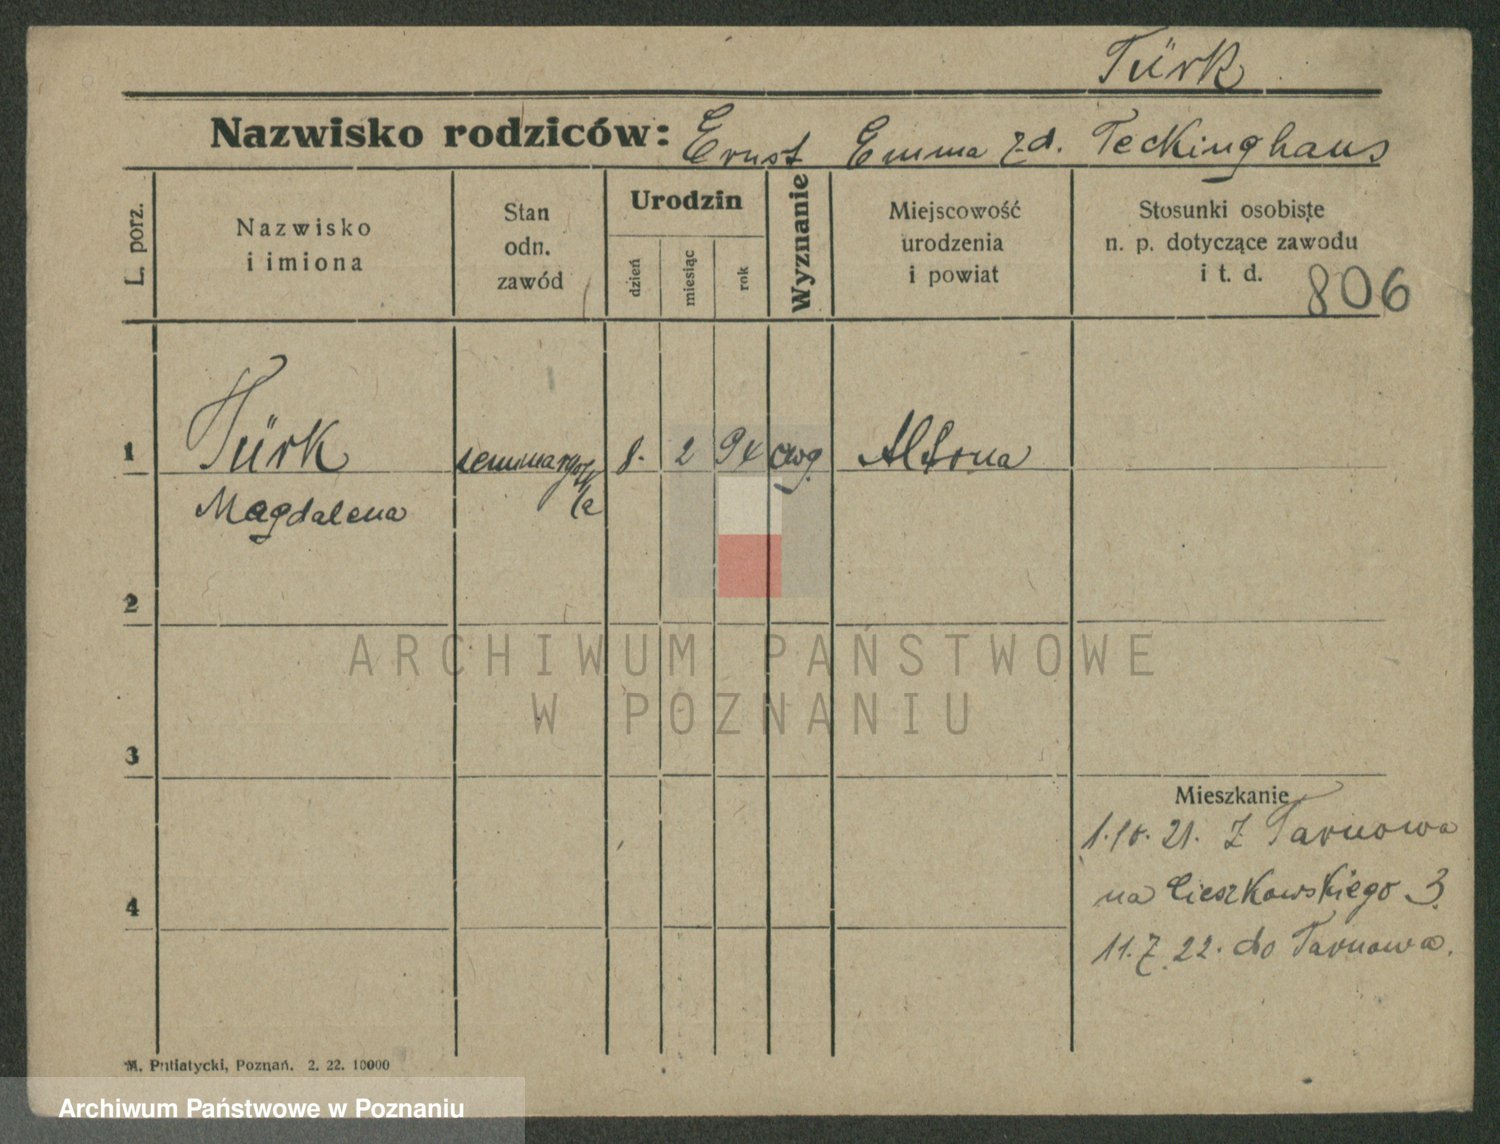 Türk
Nazwisko rodziców: Ernst Emma zd. Teckinghaus
L. porz.
Nazwisko
i imiona
Stan
odn.
zawód
Urodzin
dzień
miesiąc
rok
Wyznanie
Miejscowość
urodzenia
i powiat
Stosunki osobiste
n. p. dotyczące zawodu
i t. d.
806
1
Türk
Magdalena
8. 2 94 ewg.
Altona
2
3
4
ARCHIWUM PAŃSTWOWE
W POZNANIU
Mieszkanie
1.10.21. z Tarnowa
na Cieszkowskiego 3.
11.7.22. do Tarnowa.
M. Putiatycki, Poznań. 2. 22. 10000
Archiwum Państwowe w Poznaniu